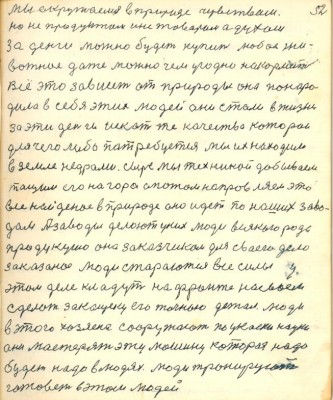 52
мы окружаемся в природе чувствам.
но не продуктам или товарам а духом
За деньги можно будет купить любое жи-
вотное даже можно чем угодно накормить
Всё это зависит от природы она понаро
дила в себя этих людей они стали в жизни
за эти деньги искать те качества которои
для чего либо потребуется мы их находим
в земле недрами. сырье мы техникой добываем
тащим его на гора а потом направляем это
все найденое в природе оно идет по наших заво-
дам А заводы делают руких люди всякаю родь
продукцию она заказчикам для своего дело
заказаное люди стараются все силы у
этом деле кладут на фронте на своем
сделать заказчику его точною деталь люди
в этого хозяена сооружают по указки науки
они мастерят эту машину которая надо
будет надо в людях люди тренируются
готовет в этом людей